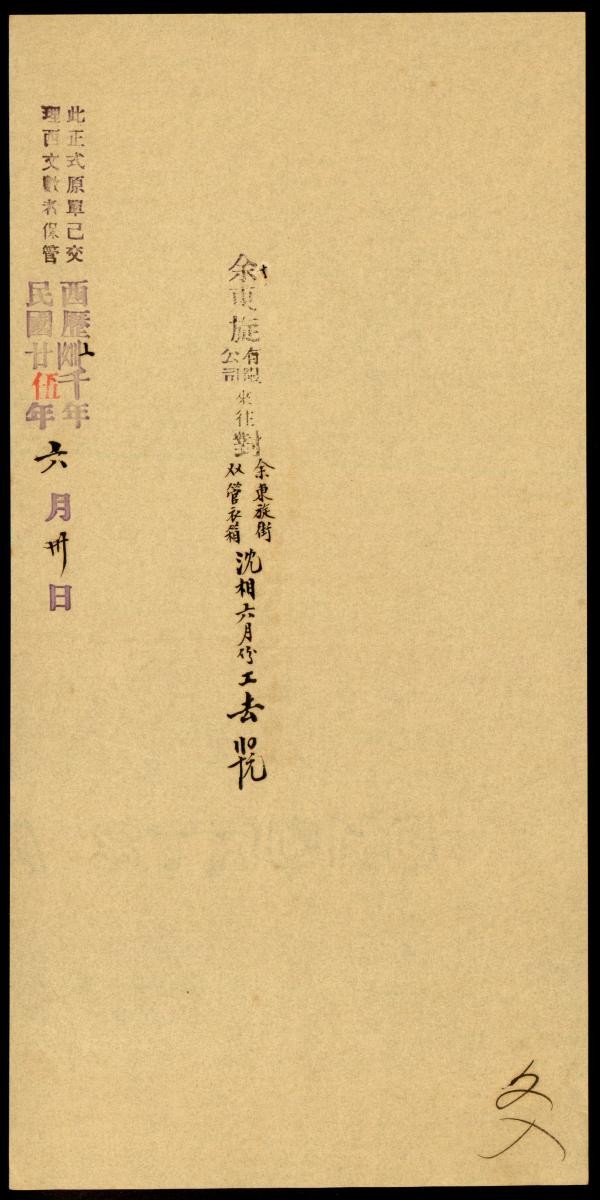 余東旋
有限
公司
來往
對
余東旋街
双管衣箱
沈相六月份工去
此正式原單已交
理西文數者保管
西歷
千年
民國廿伍年
六月卅日